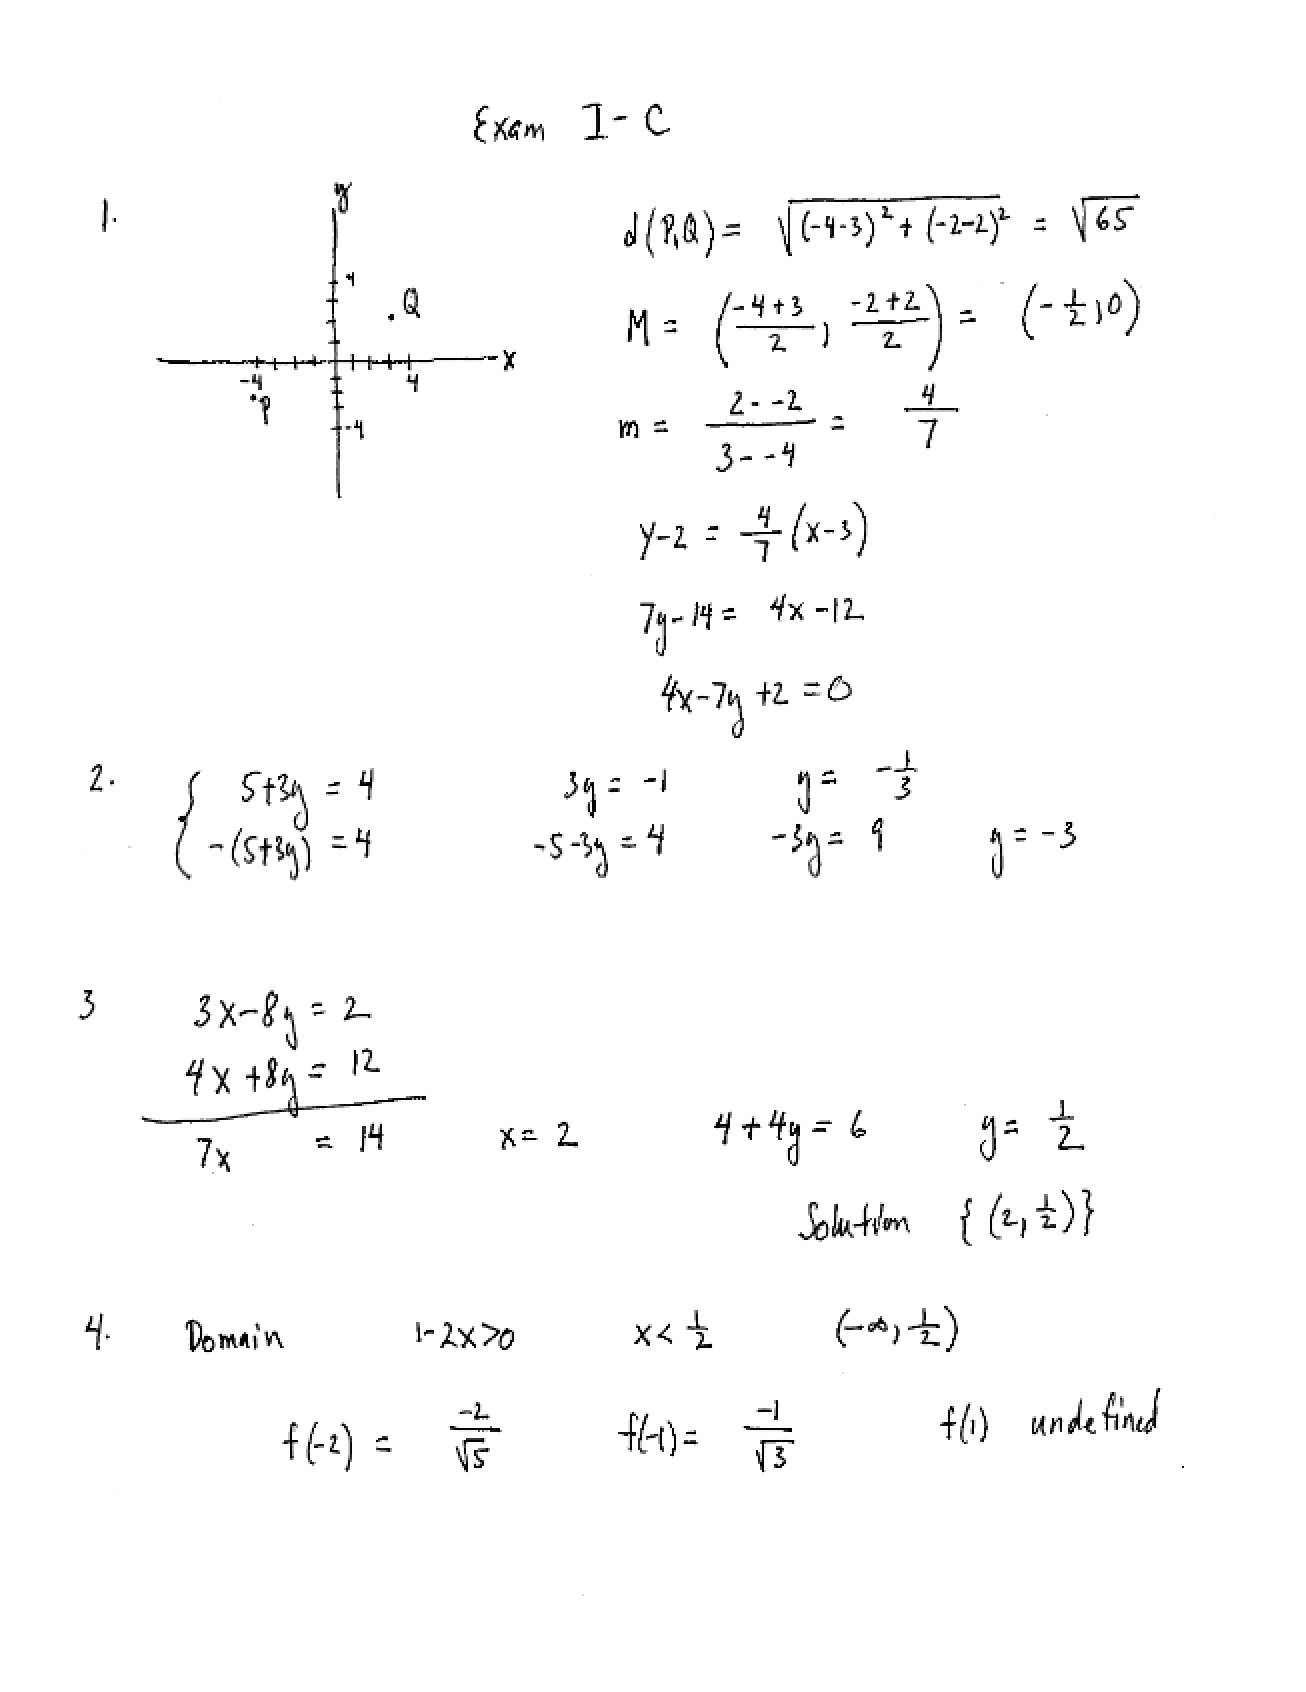 Exam I-C
1.
y
4
.Q
-4 4 x
.P
-4
d(P,Q) = √((-4-3)² + (-2-2)²) = √65
M = ((-4+3)/2, (-2+2)/2) = (-1/2, 0)
m = (2--2)/(3--4) = 4/7
y-2 = 4/7 (x-3)
7y-14 = 4x-12
4x-7y+2=0
2. { 5+3y = 4 3y = -1 y = -1/3
-(5+3y) = 4 -5-3y = 4 -3y = 9 y = -3
3 3x-8y = 2
4x+8y = 12
7x = 14 x = 2 4+4y = 6 y = 1/2
Solution {(2, 1/2)}
4. Domain 1-2x>0 x < 1/2 (-∞, 1/2)
f(-2) = -2/√5 f(-1) = -1/√3 f(1) undefined